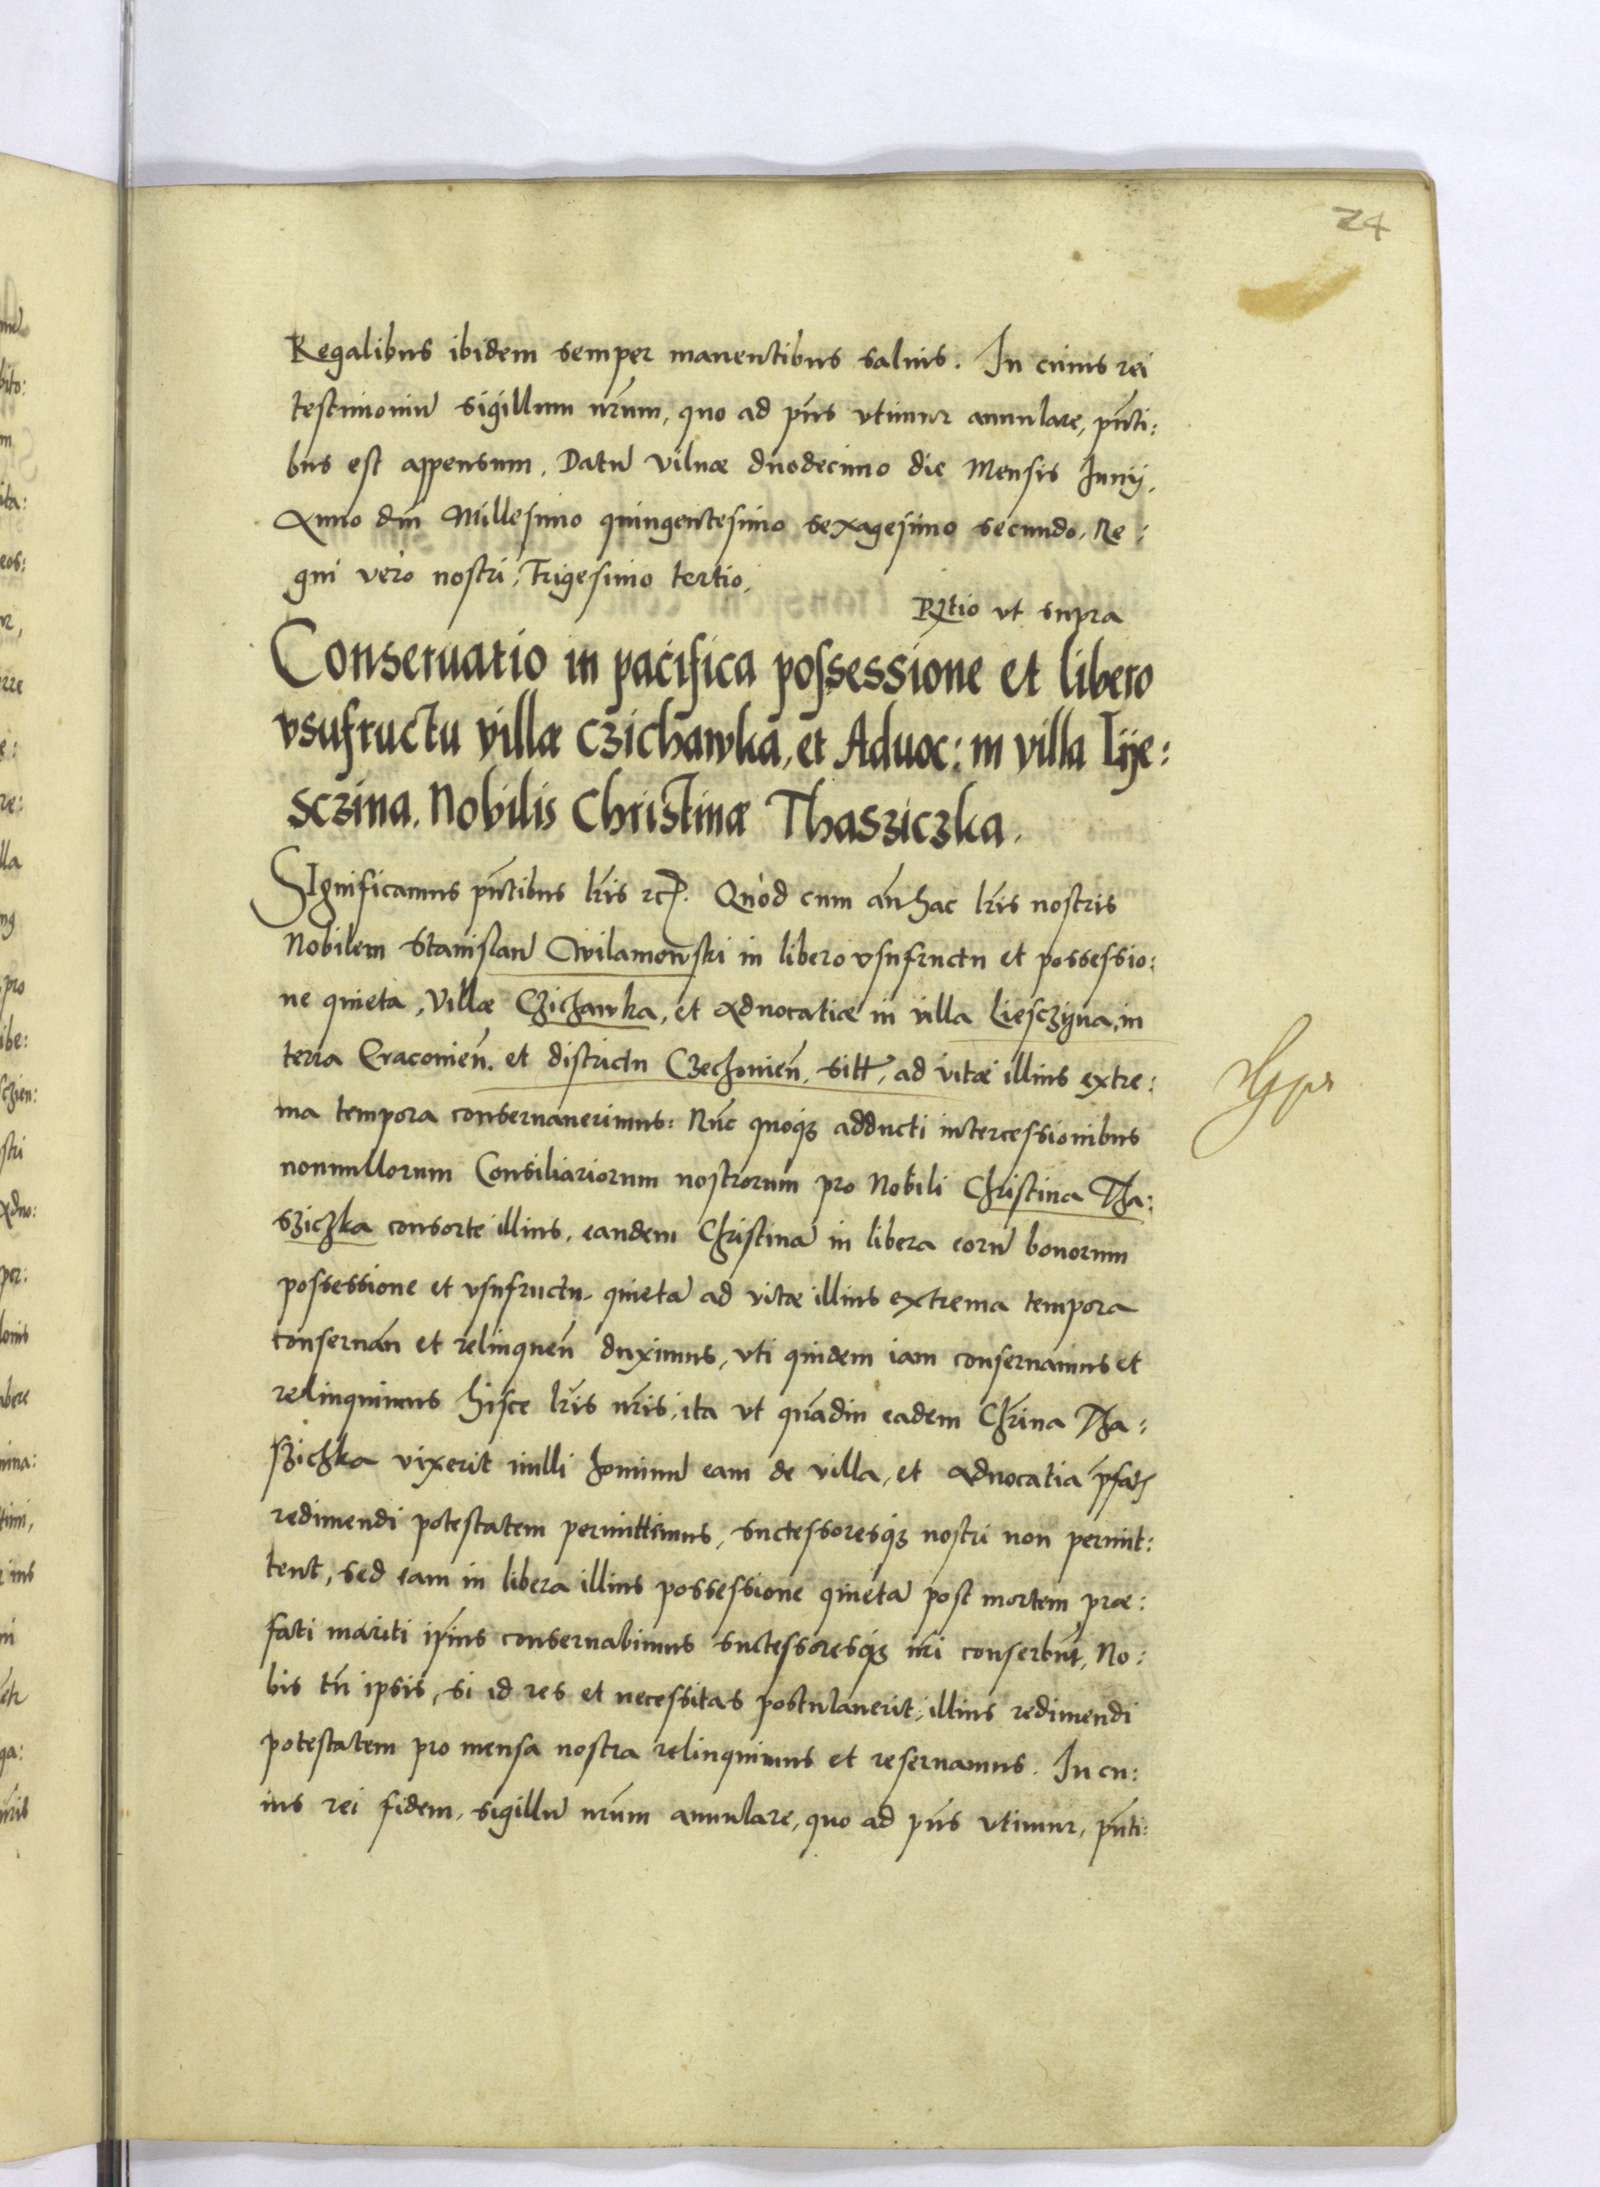 24
Regalibus ibidem semper manentibus saluis. In cuius rei
testimoniũ sigillum nr̃um, quo ad pñs vtimur annulare, pñti:
bus est appensum. Datũ Vilnæ duodecimo die Mensis Junij.
Anno dñi Millesimo quingentesimo sexagesimo secundo. Re:
gni vero nostri, Trigesimo tertio.
Rłtio vt supra
Conseruatio in pacifica possessione et libero
vsufructu villæ Czichawka, et Aduoc: in villa Lije:
sczina. Nobilis Christinæ Thasziczka.
SIgnificamus pñtibus lr̃is etc. Quòd cum añhac lr̃is nostris
Nobilem Stanislaũ Wilamowski in libero vsufructu et possessio:
ne quieta, Villæ Czichawka, et Aduocatiæ in villa Liesczyna, in
terra Cracouień. et districtu Czechouień. sitt, ad vitæ illius extre:
ma tempora conseruauerimus: Nũc quoq3 adducti intercessionibus
nonnullorum Consiliariorum nostrorum pro Nobili Christina Tha:
sziczka consorte illius, eandem Christinã in libera eorũ bonorum
possessione et vsufructu quietã ad vitæ illius extrema tempora
conseruañ et relinqueñ duximus, vti quidem iam conseruamus et
relinquimus hisce lr̃is nr̃is, ita vt quãdiu eadem Chr̃ina Tha:
sziczka vixerit nulli hominũ eam de villa, et Aduocatia p̃fatis
redimendi potestatem permittimus, successoresq3 nostri non permit:
tent, sed eam in libera illius possessione quietã post mortem præ:
fati mariti ip̃ius conseruabimus successoresq3 nr̃i conserbũt, No:
bis tñ ipsis, si id res et necessitas postulauerit, illius redimendi
potestatem pro mensa nostra relinquimus et reseruamus. In cu:
ius rei fidem, sigillũ nr̃um annulare, quo ad pñs vtimur, pñti: